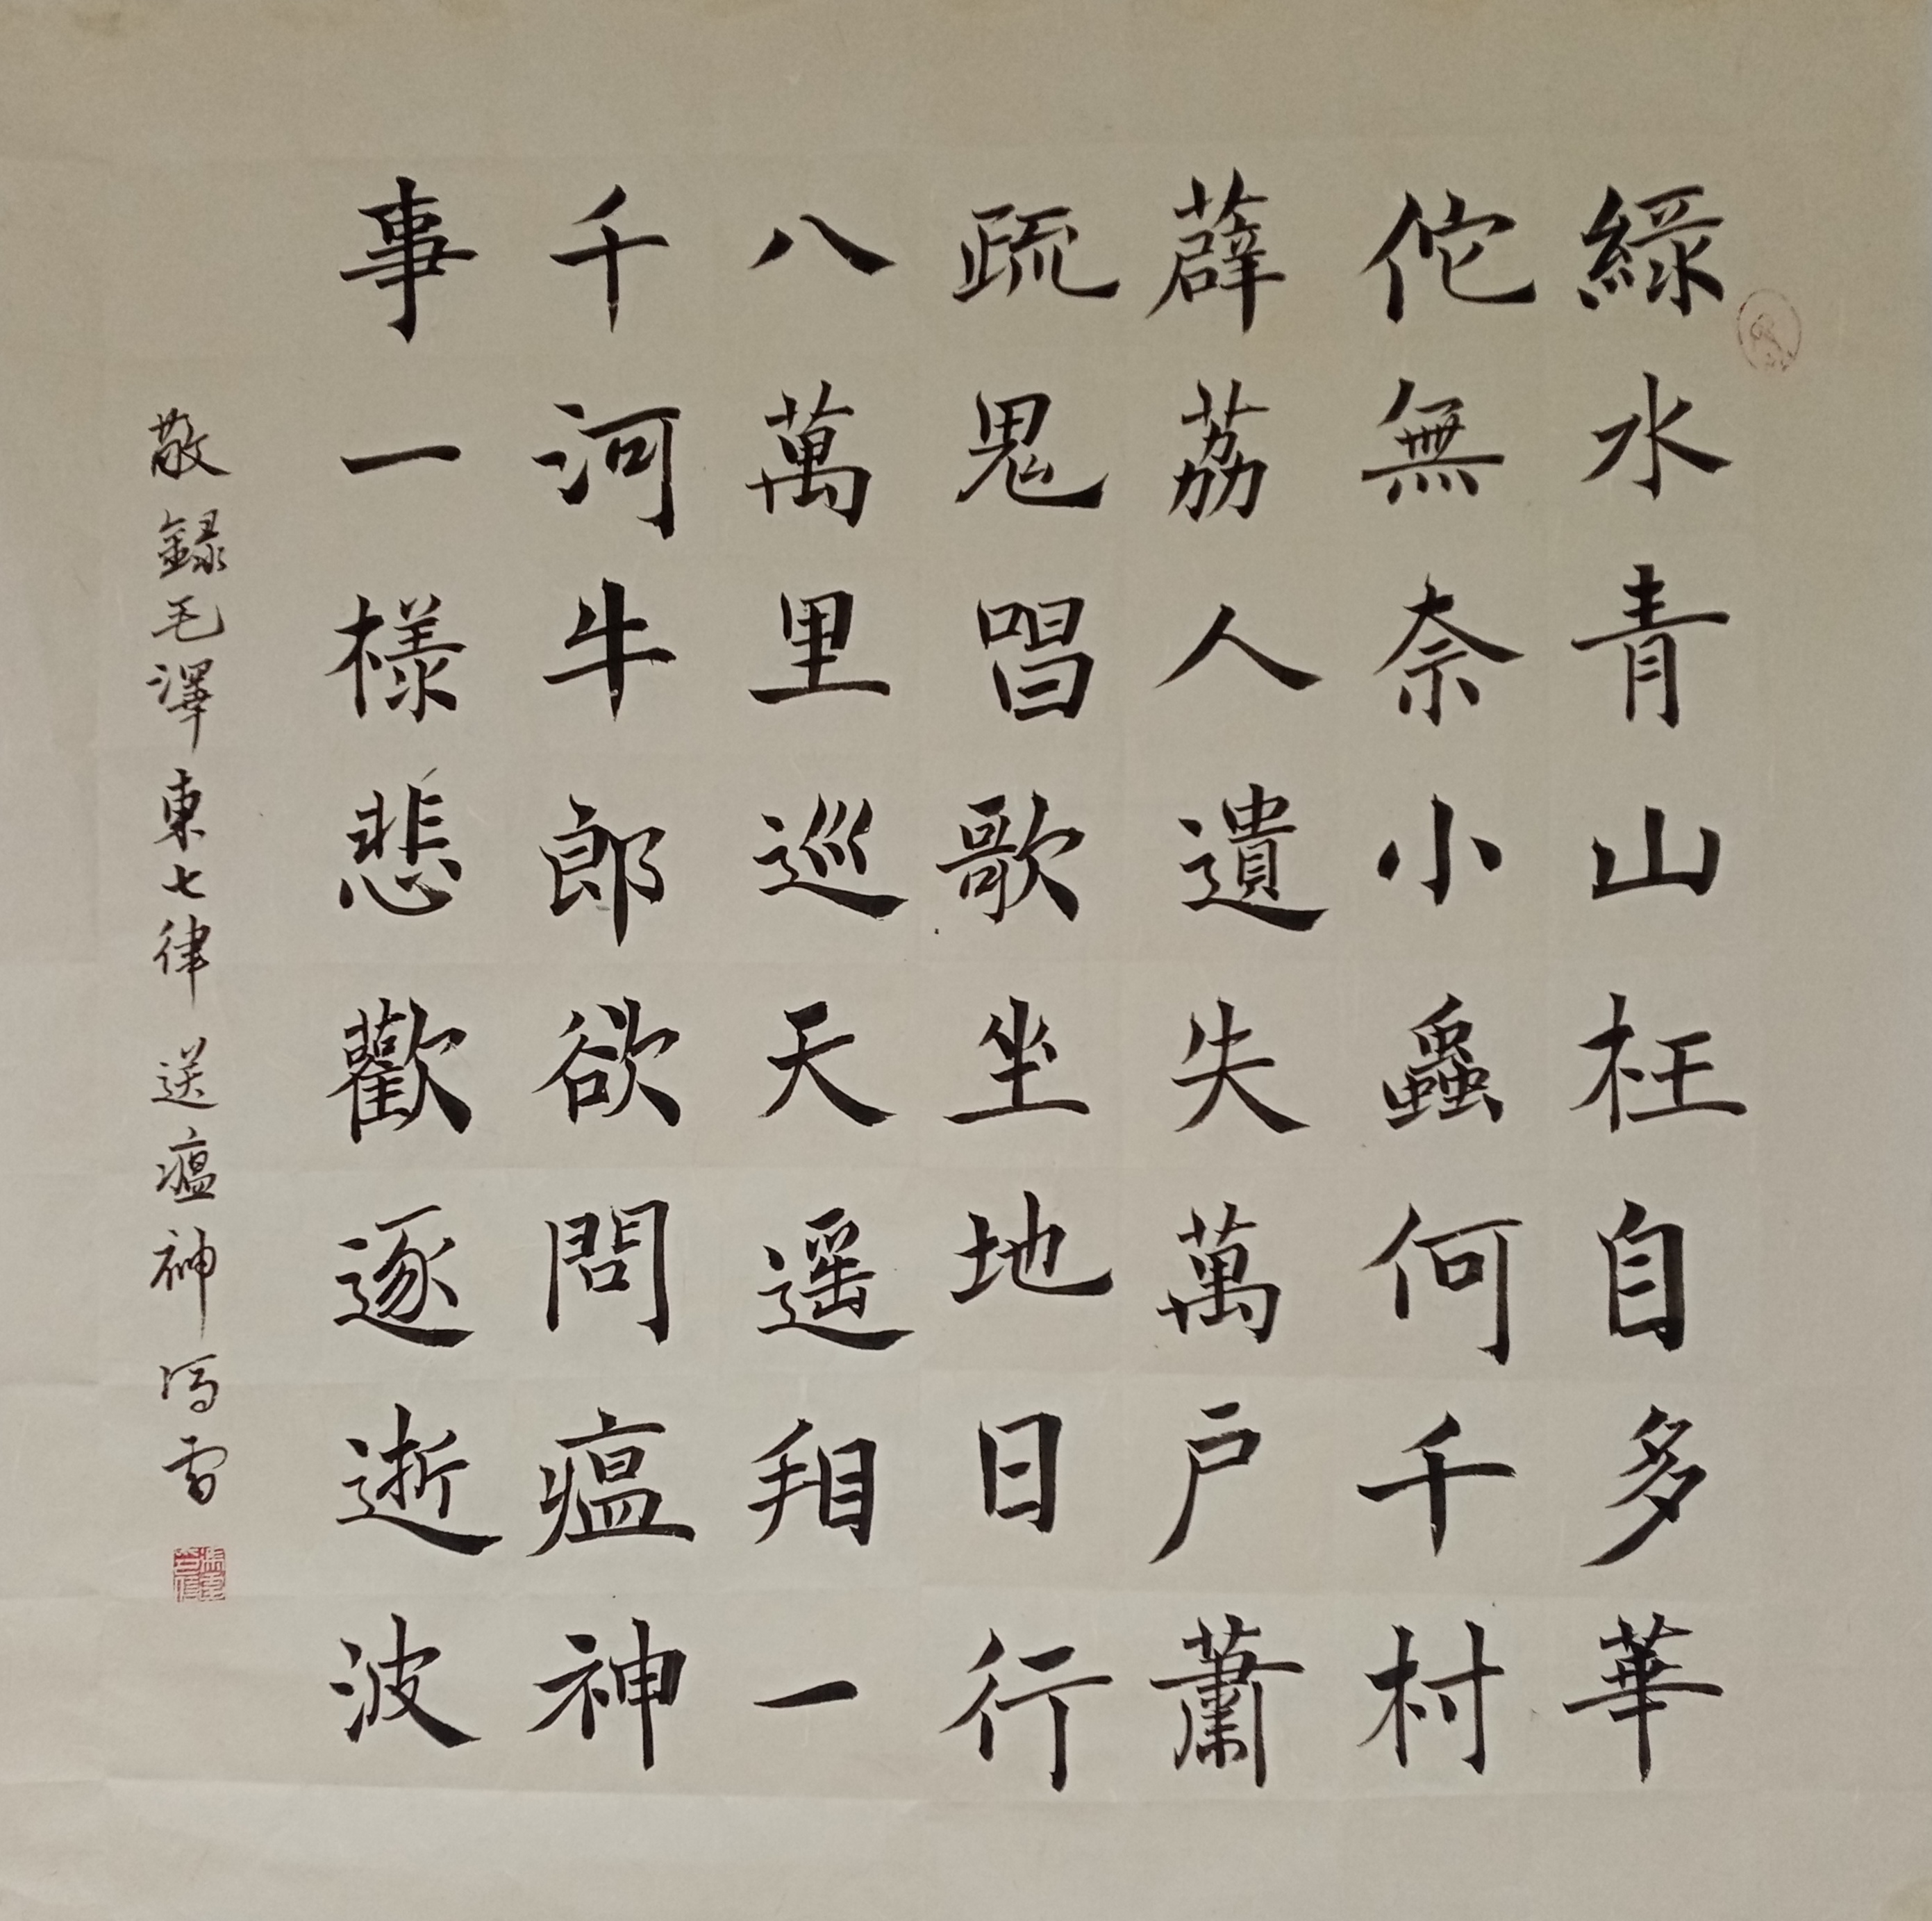 綠水青山枉自多華
佗無奈小蟲何千村
薜荔人遺失萬戶蕭
疏鬼唱歌坐地日行
八萬里巡天遥相一
千河牛郎欲問瘟神
事一樣悲歡逐逝波
敬録毛澤東七律送瘟神馮雪